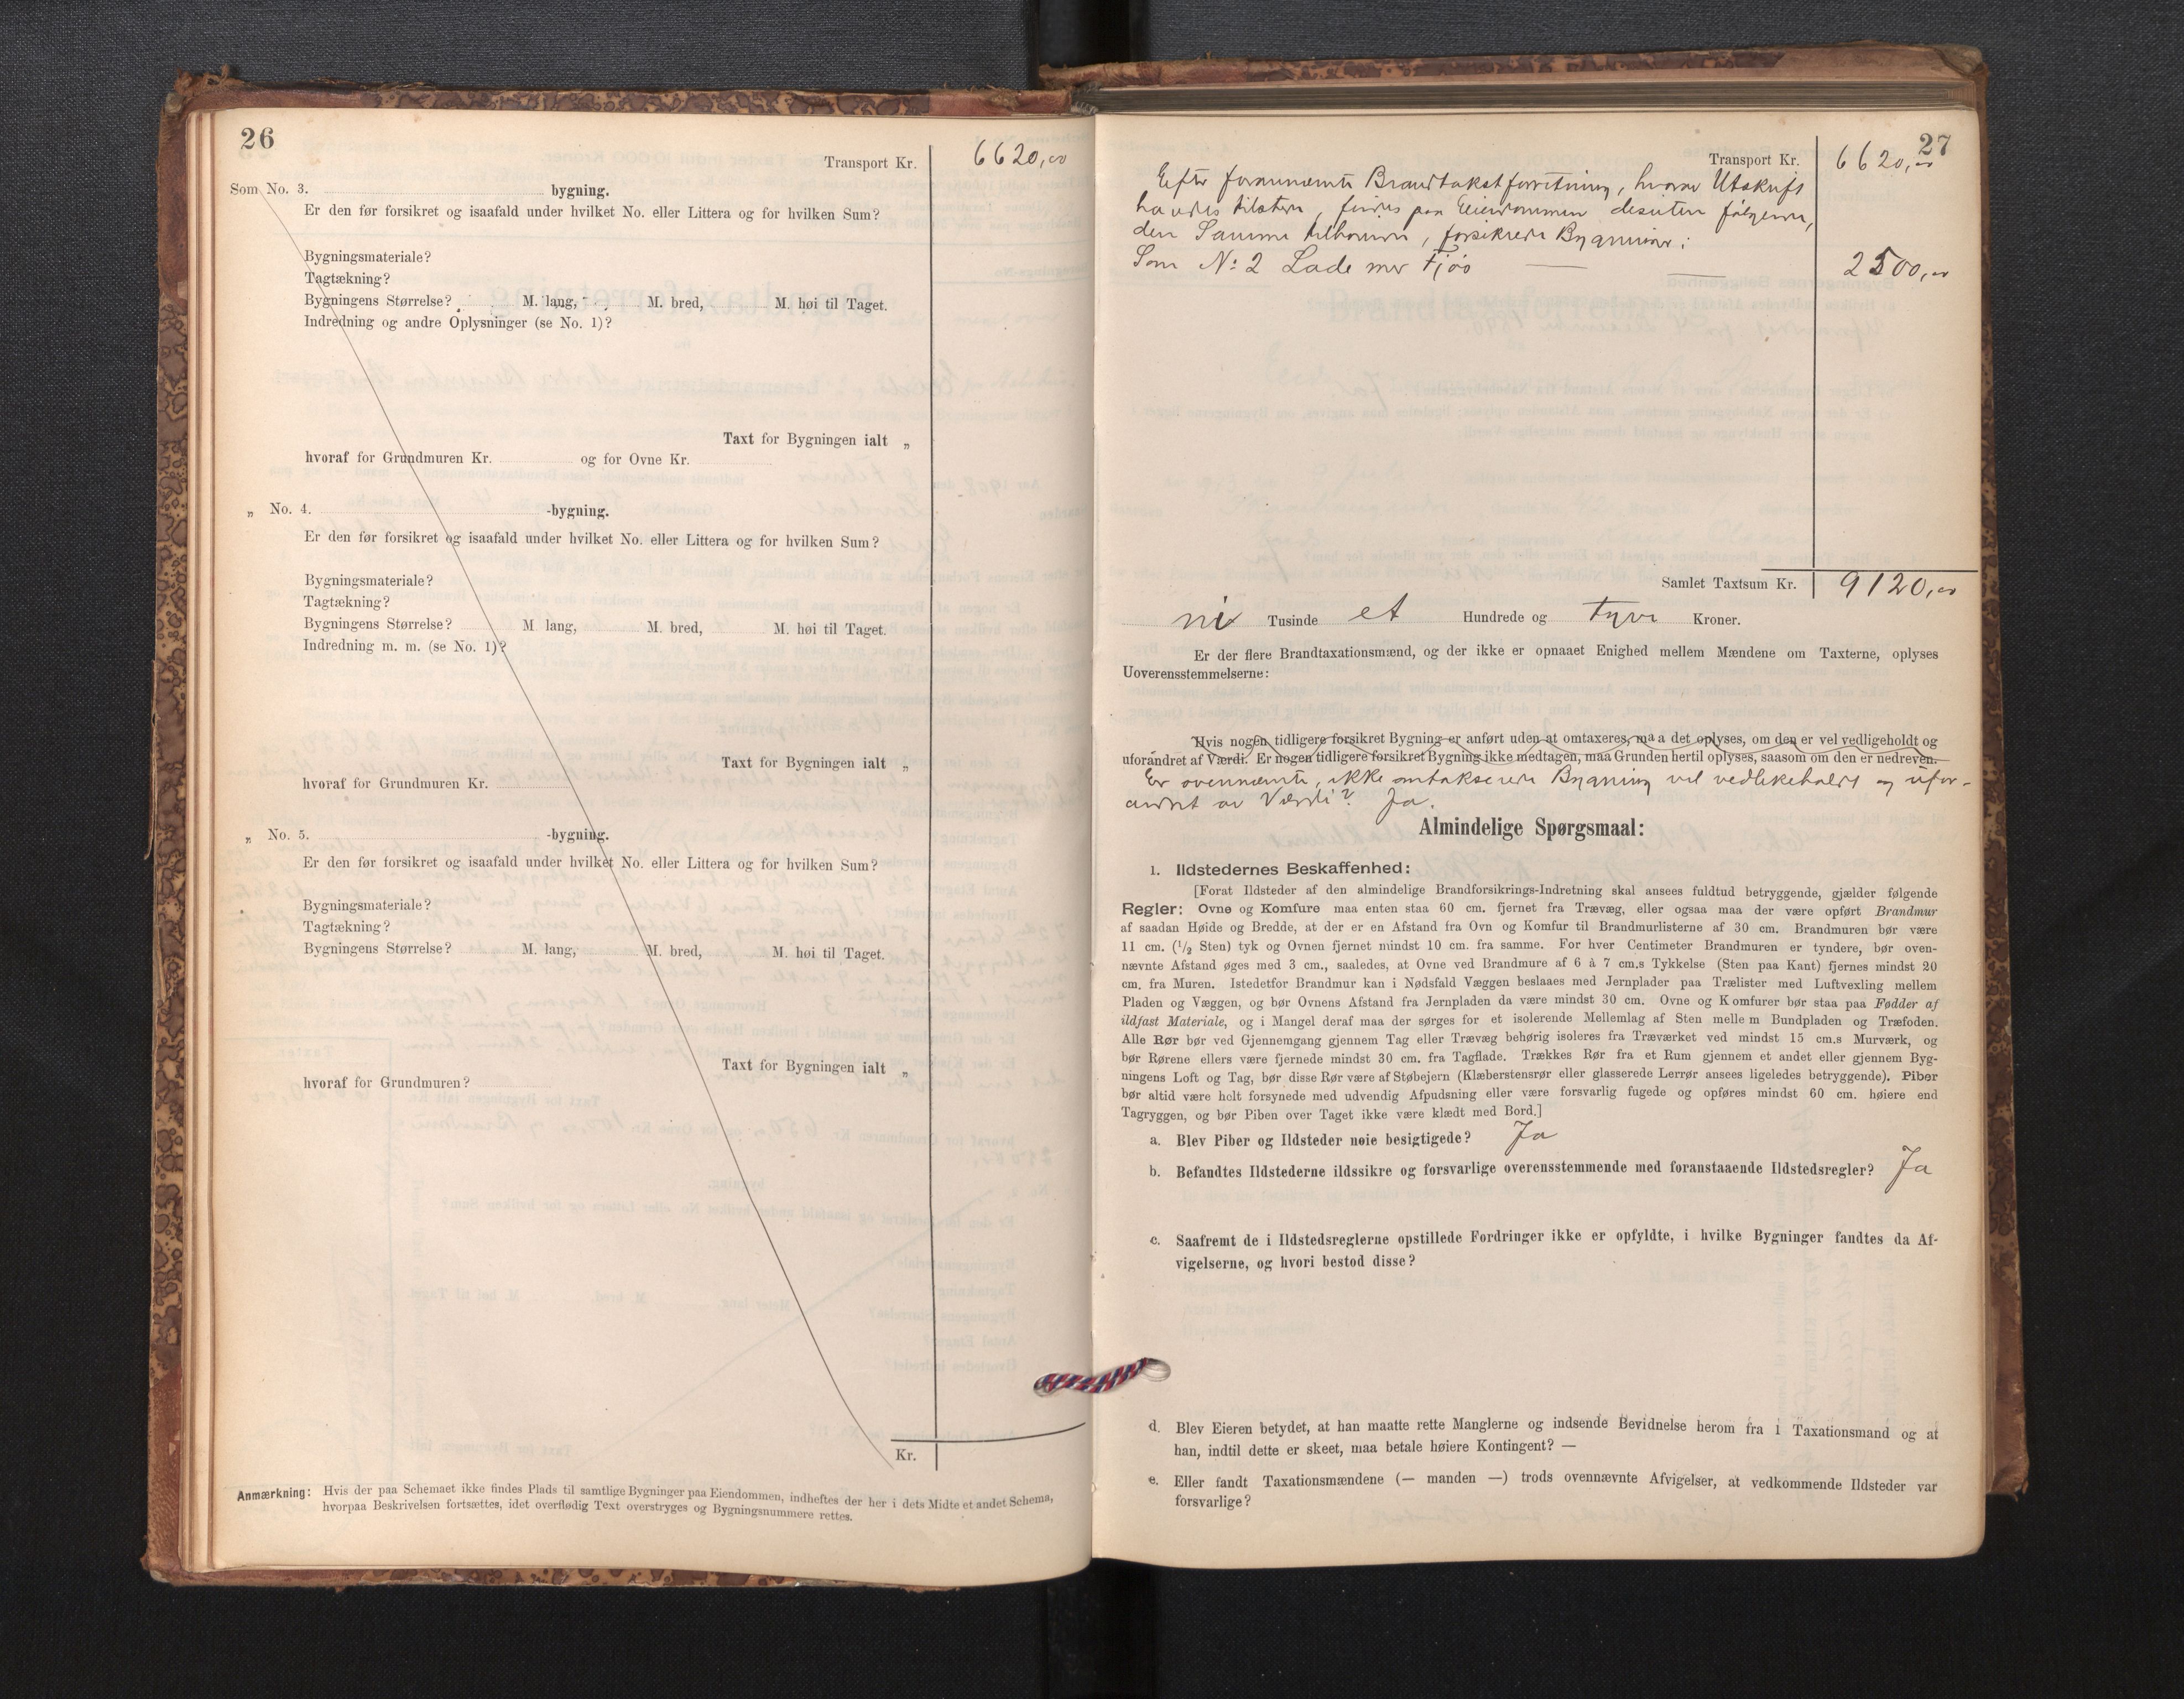 26
Transport Kr. 6620,00
Som No. 3. bygning.
Er den før forsikret og isaafald under hvilket No. eller Littera og for hvilken Sum?
Bygningsmateriale?
Tagtækning?
Bygningens Størrelse? M. lang, M. bred, M. høi til Taget.
Indredning og andre Oplysninger (se No. 1)?
Taxt for Bygningen ialt „
hvoraf for Grundmuren Kr. og for Ovne Kr.
„ No. 4. -bygning.
Er den før forsikret og isaafald under hvilket No. eller Littera og for hvilken Sum?
Bygningsmateriale?
Tagtækning?
Bygningens Størrelse? M. lang, M. bred, M. høi til Taget.
Indredning m. m. (se No. 1)?
Taxt for Bygningen ialt „
hvoraf for Grundmuren Kr.
„ No. 5. -bygning.
Er den før forsikret og isaafald under hvilket No. eller Littera og for hvilken Sum?
Bygningsmateriale?
Tagtækning?
Bygningens Størrelse? M. lang, M. bred, M. høi til Taget.
Taxt for Bygningen ialt „
hvoraf for Grundmuren?
Kr.
Anmærkning: Hvis der paa Schemaet ikke findes Plads til samtlige Bygninger paa Eiendommen, indheftes der her i dets Midte et andet Schema,
hvorpaa Beskrivelsen fortsættes, idet overflødig Text overstryges og Bygningsnummere rettes.
27
Transport Kr. 6620,00
Efter forannævnte Brandtakstforretning, hvorav Utskrift
havdes tilstede, findes paa Eiendommen desuten følgende,
den Samme tilhørende, forsikrede Bygninger:
Som No: 2 Lade med Fjøs 2500,00
Samlet Taxtsum Kr. 9120,00
ni Tusinde et Hundrede og tyve Kroner.
Er der flere Brandtaxationsmænd, og der ikke er opnaaet Enighed mellem Mændene om Taxterne, oplyses
Uoverensstemmelserne:
Hvis nogen tidligere forsikret Bygning er anført uden at omtaxeres, maa det oplyses, om den er vel vedligeholdt og
uforandret af Værdi. Er nogen tidligere forsikret Bygning ikke medtagen, maa Grunden hertil oplyses, saasom om den er nedreven.
Er ovennævnte, ikke omtakserede Bygning vel vedlikeholdt og ufor-
andret av Værdi? Ja.
Almindelige Spørgsmaal:
1. Ildstedernes Beskaffenhed:
[Forat Ildsteder af den almindelige Brandforsikrings-Indretning skal ansees fuldtud betryggende, gjælder følgende
Regler: Ovne og Komfure maa enten staa 60 cm. fjernet fra Trævæg, eller ogsaa maa der være opført Brandmur
af saadan Høide og Bredde, at der er en Afstand fra Ovn og Komfur til Brandmurlisterne af 30 cm. Brandmuren bør være
11 cm. (1/2 Sten) tyk og Ovnen fjernet mindst 10 cm. fra samme. For hver Centimeter Brandmuren er tyndere, bør oven-
nævnte Afstand øges med 3 cm., saaledes, at Ovne ved Brandmure af 6 à 7 cm.s Tykkelse (Sten paa Kant) fjernes mindst 20
cm. fra Muren. Istedetfor Brandmur kan i Nødsfald Væggen beslaaes med Jernplader paa Trælister med Luftvexling mellem
Pladen og Væggen, og bør Ovnens Afstand fra Jernpladen da være mindst 30 cm. Ovne og Komfurer bør staa paa Fødder af
ildfast Materiale, og i Mangel deraf maa der sørges for et isolerende Mellemlag af Sten mellem Bundpladen og Træfoden.
Alle Rør bør ved Gjennemgang gjennem Tag eller Trævæg behørig isoleres fra Træværket ved mindst 15 cm.s Murværk, og
bør Rørene ellers være fjernede mindst 30 cm. fra Tagflade. Trækkes Rør fra et Rum gjennem et andet eller gjennem Byg-
ningens Loft og Tag, bør disse Rør være af Støbejern (Klæberstensrør eller glasserede Lerrør ansees ligeledes betryggende). Piber
bør altid være helt forsynede med udvendig Afpudsning eller være forsvarlig fugede og opføres mindst 60 cm. høiere end
Tagryggen, og bør Piben over Taget ikke være klædt med Bord.]
a. Blev Piber og Ildsteder nøie besigtigede? Ja
b. Befandtes Ildstederne ildssikre og forsvarlige overensstemmende med foranstaaende Ildstedsregler? Ja
c. Saafremt de i Ildstedsreglerne opstillede Fordringer ikke er opfyldte, i hvilke Bygninger fandtes da Af-
vigelserne, og hvori bestod disse?
d. Blev Eieren betydet, at han maatte rette Manglerne og indsende Bevidnelse herom fra 1 Taxationsmand og at
han, indtil dette er skeet, maa betale høiere Kontingent? —
e. Eller fandt Taxationsmændene (— manden —) trods ovennævnte Afvigelser, at vedkommende Ildsteder var
forsvarlige?